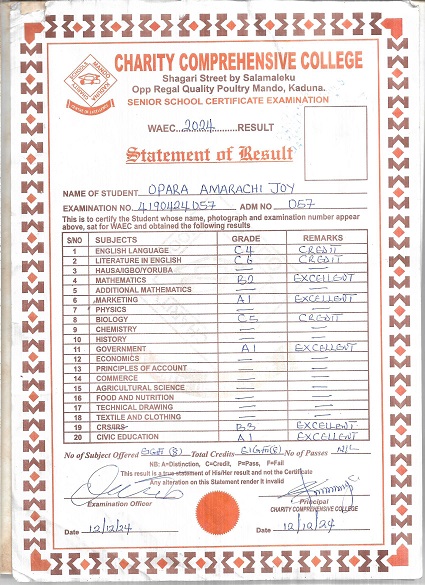 CHARITY COMPREHENSIVE COLLEGE
Shagari Street by Salamaleku
Opp Regal Quality Poultry Mando, Kaduna.
SENIOR SCHOOL CERTIFICATE EXAMINATION
WAEC...2024...RESULT
Statement of Result
NAME OF STUDENT OPARA AMARACHI JOY
EXAMINATION NO. 4190424057 ADM NO 057
This is to certify the Student whose name, photograph and examination number appear
above, sat for WAEC and obtained the following results
S/NO SUBJECTS GRADE REMARKS
1 ENGLISH LANGUAGE C4 CREDIT
2 LITERATURE IN ENGLISH C6 CREDIT
3 HAUSA/IGBO/YORUBA — —
4 MATHEMATICS B2 EXCELLENT
5 ADDITIONAL MATHEMATICS — —
6 MARKETING A1 EXCELLENT
7 PHYSICS — —
8 BIOLOGY C5 CREDIT
9 CHEMISTRY — —
10 HISTORY — —
11 GOVERNMENT A1 EXCELLENT
12 ECONOMICS — —
13 PRINCIPLES OF ACCOUNT — —
14 COMMERCE — —
15 AGRICULTURAL SCIENCE — —
16 FOOD AND NUTRITION — —
17 TECHNICAL DRAWING — —
18 TEXTILE AND CLOTHING — —
19 CRS/IRS B3 EXCELLENT
20 CIVIC EDUCATION A1 EXCELLENT
No of Subject Offered EIGHT (8) Total Credits EIGHT(8) No of Passes NIL
NB: A=Distinction, C=Credit, P=Pass, F=Fail
This result is a true statement of His/Her result and not the Certificate
Any alteration on this Statement render it invalid
Examination Officer
Principal
CHARITY COMPREHENSIVE COLLEGE
Date 12/12/24 Date 12/12/24